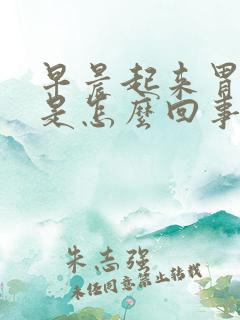 早晨起来胃
是怎麼回事
朱志强
未经同意禁止转载